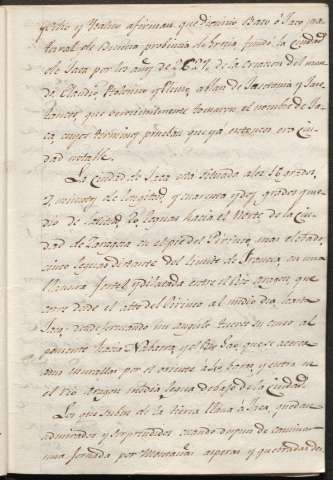 y otros afirman, que Dionisio Baco ó Jaco, na
tural de Beocia probincia de Grecia, fundó la Ciudad
de Jaca por los años de 2627 de la Creacion del mun
do. Claudio, Ptolomeo y Plinio, ablan de Jacetania y Jace
tanos, que verosimilmente tomaron el nombre de Ja
ca, cuyos terminos prueban que ya entonces era ciu
dad notable.
La Ciudad de Jaca está situada a los 16 grados,
7 minutos de longitud, y cuarenta y dos grados y me
dio de latitud, leguas hacia el Norte de la Ciu
dad de Zaragoza en el pie del Pirineo, mas elevado,
cinco leguas distante del limite de Francia, en una
llanura fertil y dilatada entre el Rio Aragon, que
corre desde el alto del Pirineo al medio dia, hasta
Jaca; donde formando un angulo tuerce su curso al
poniente hacia Nabarra, y el Rio Gas, que se acerca
a sus murallas por el oriente a la hora, y entra en
el rio Aragon media legua debajo de la Ciudad.
Los que suben de la tierra llana á Jaca, quedan
admirados y sorprendidos cuando despues de caminar
una jornada por Montañas asperas y quebradas des